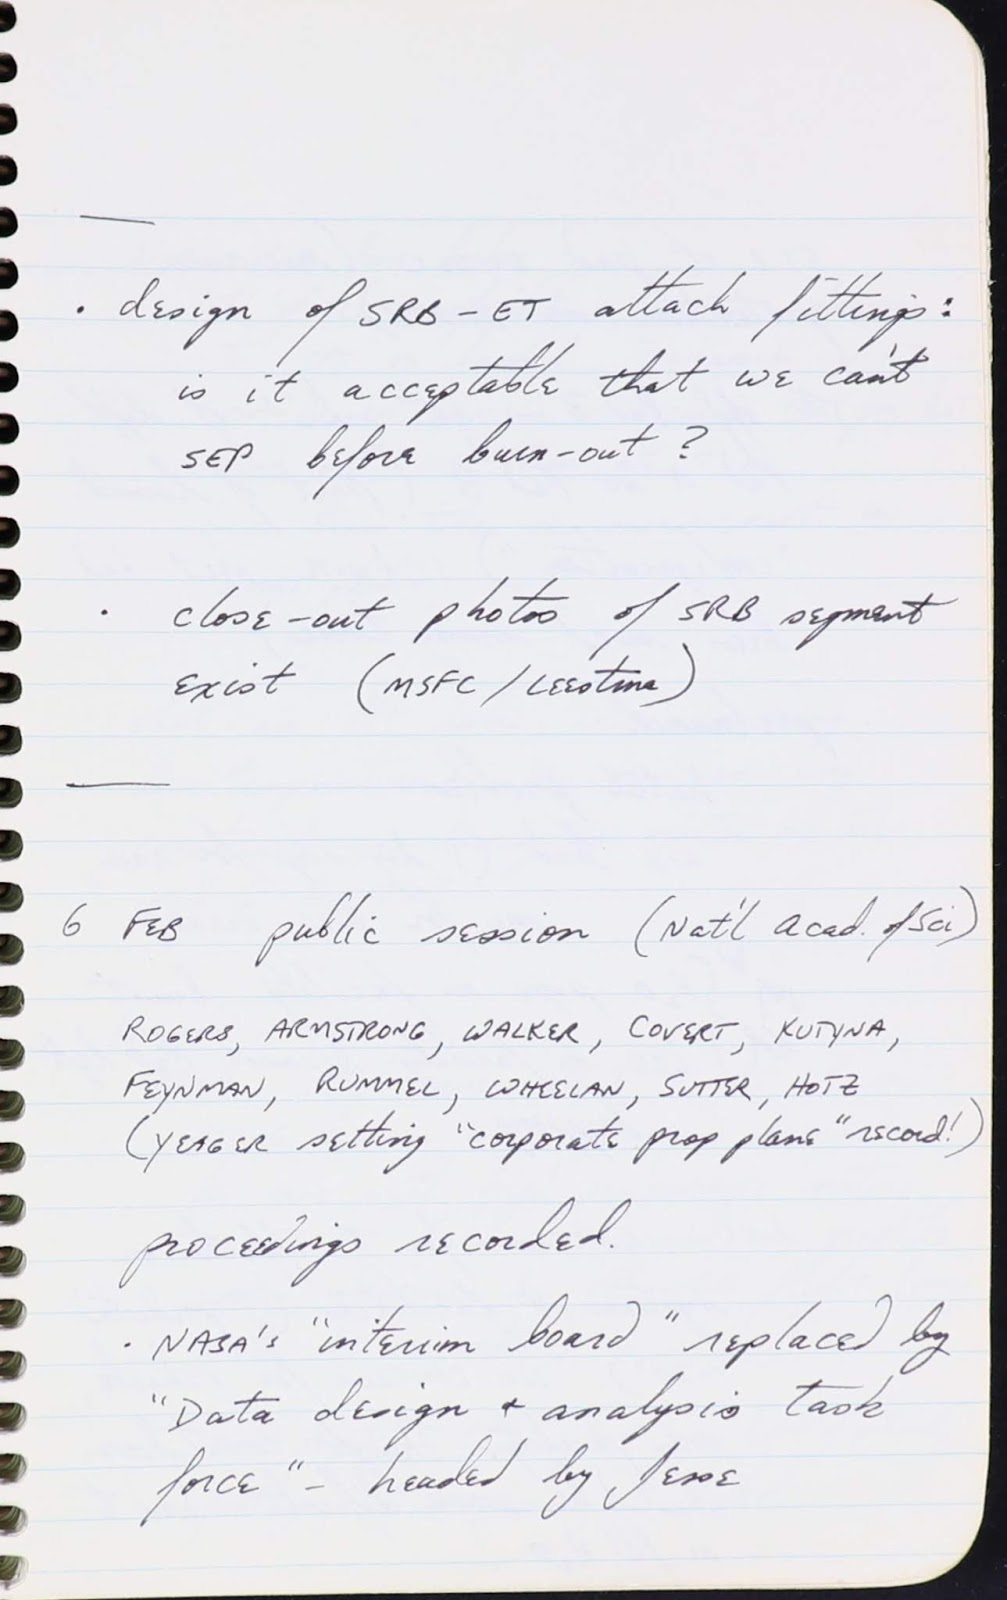 · design of SRB-ET attach fittings:
is it acceptable that we can't
SEP before burn-out?
· close-out photos of SRB segment
exist (MSFC/Leestma)
6 FEB public session (Nat'l Acad. of Sci)
ROGERS, ARMSTRONG, WALKER, COVERT, KUTYNA,
FEYNMAN, RUMMEL, WHEELAN, SUTTER, HOTZ
(YEAGER setting "corporate prop plane" record!)
proceedings recorded.
· NASA's "interim board" replaced by
"Data design + analysis task
force" - headed by Jesse